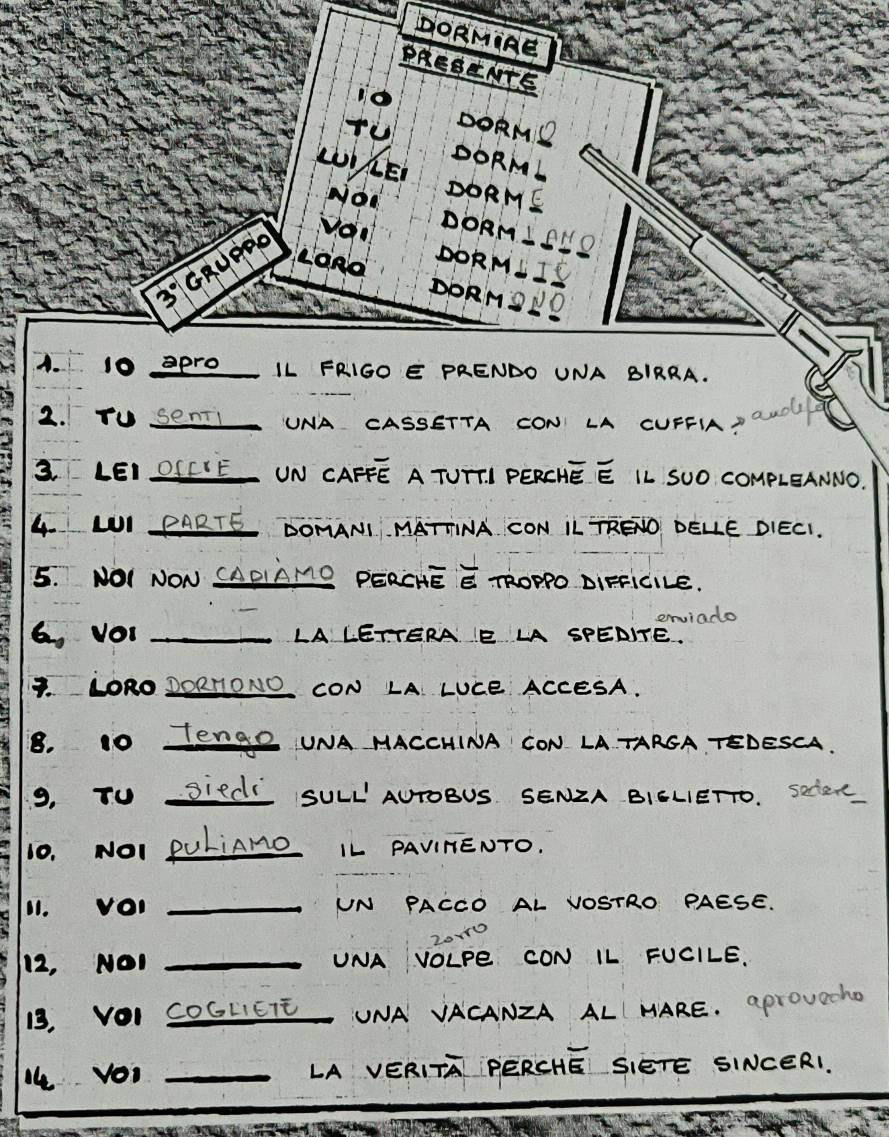 DORMIRE
PRESENTE
IO DORMO
TU DORMI
LUI/LEI DORME
NOI DORMIAMO
VOI DORMITE
LORO DORMONO
3° GRUPPO
1. IO apro IL FRIGO E PRENDO UNA BIRRA.
2. TU senti UNA CASSETTA CON LA CUFFIA.
3. LEI OFFRE UN CAFFÈ A TUTTI PERCHÈ È IL SUO COMPLEANNO.
4. LUI PARTE DOMANI MATTINA CON IL TRENO DELLE DIECI.
5. NOI NON CAPIAMO PERCHÈ È TROPPO DIFFICILE.
enviado
6. VOI ______ LA LETTERA E LA SPEDITE.
7. LORO DORMONO CON LA LUCE ACCESA.
8. IO Tengo UNA MACCHINA CON LA TARGA TEDESCA.
9. TU siedi SULL' AUTOBUS SENZA BIGLIETTO. sedere
10. NOI PULIAMO IL PAVIMENTO.
11. VOI ______ UN PACCO AL VOSTRO PAESE.
zorro
12. NOI ______ UNA VOLPE CON IL FUCILE.
13. VOI COGLIETE UNA VACANZA AL MARE. aprovecho
14. VOI ______ LA VERITÀ PERCHÈ SIETE SINCERI.